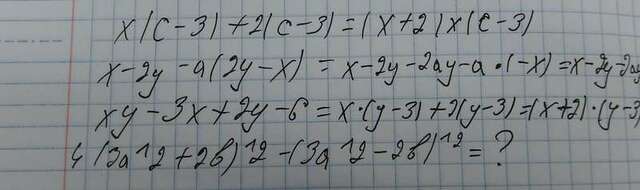 x(c-3)+2(c-3)=(x+2)x(c-3)
x-2y-a(2y-x)=x-2y-2ay-a·(-x)=x-2y-2ay
xy-3x+2y-6=x·(y-3)+2(y-3)=(x+2)·(y-3
4(3a^2+2b)^2-(3a^2-2b)^2=?